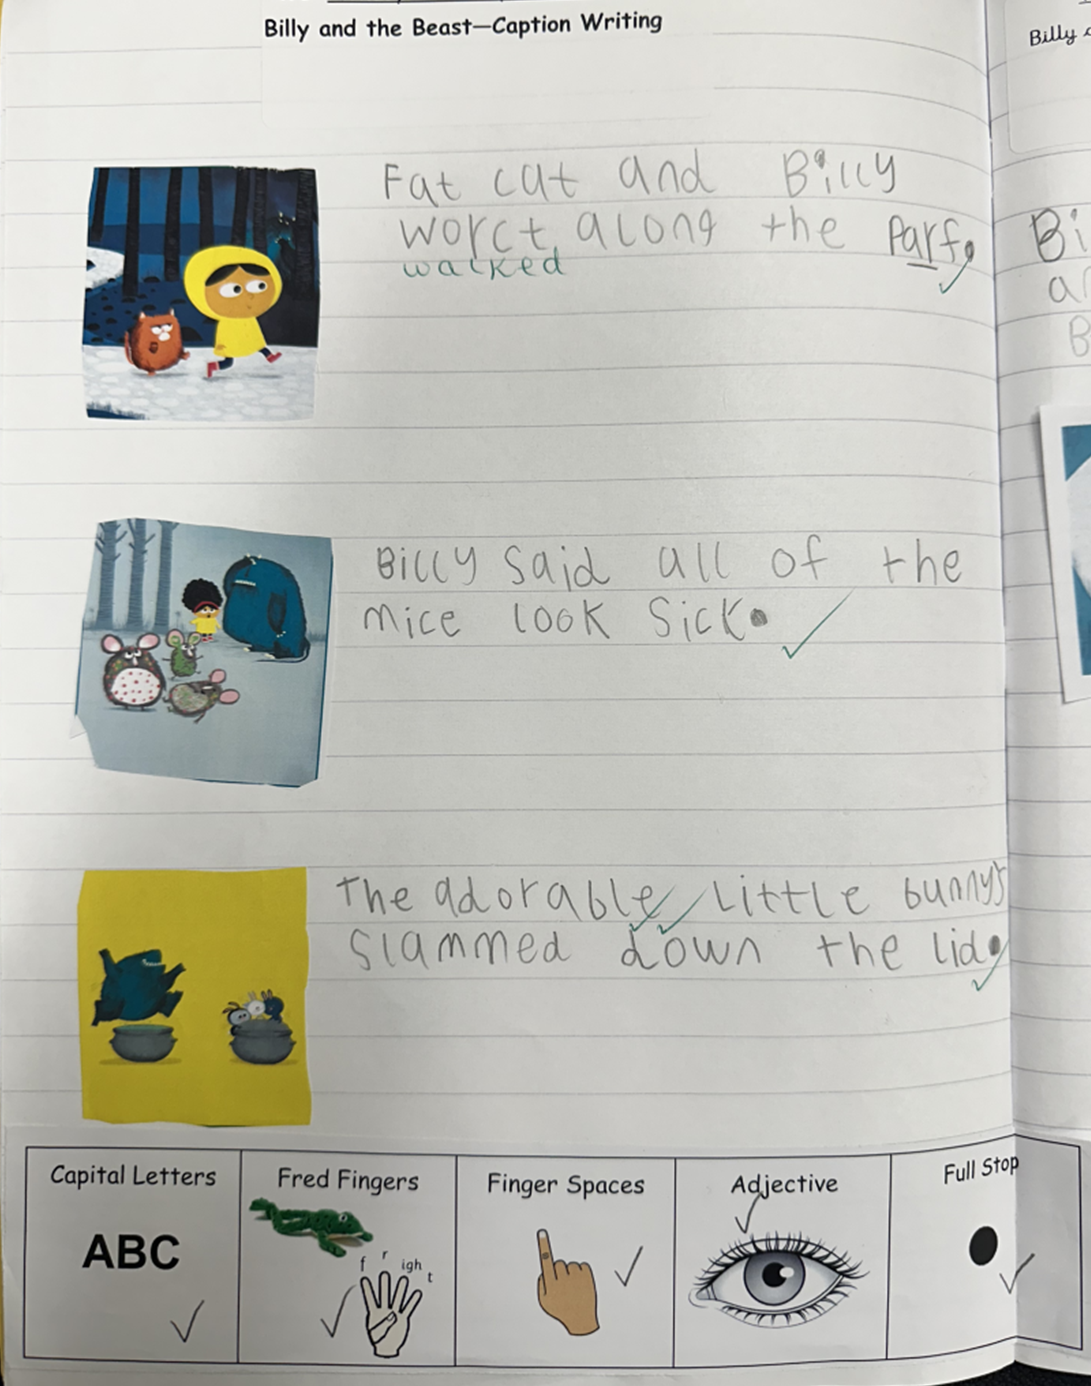 Billy and the Beast—Caption Writing
Billy
Fat cat and Billy
worct along the parf.
walked
Billy said all of the
mice look sick.
The adorable little bunnys
slammed down the lid.
Bi
a
B
Capital Letters
ABC
Fred Fingers
f r igh t
Finger Spaces
Adjective
Full Stop